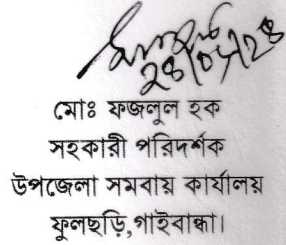 ২৪/০৮/২৪
মোঃ ফজলুল হক
সহকারী পরিদর্শক
উপজেলা সমবায় কার্যালয়
ফুলছড়ি,গাইবান্ধা।